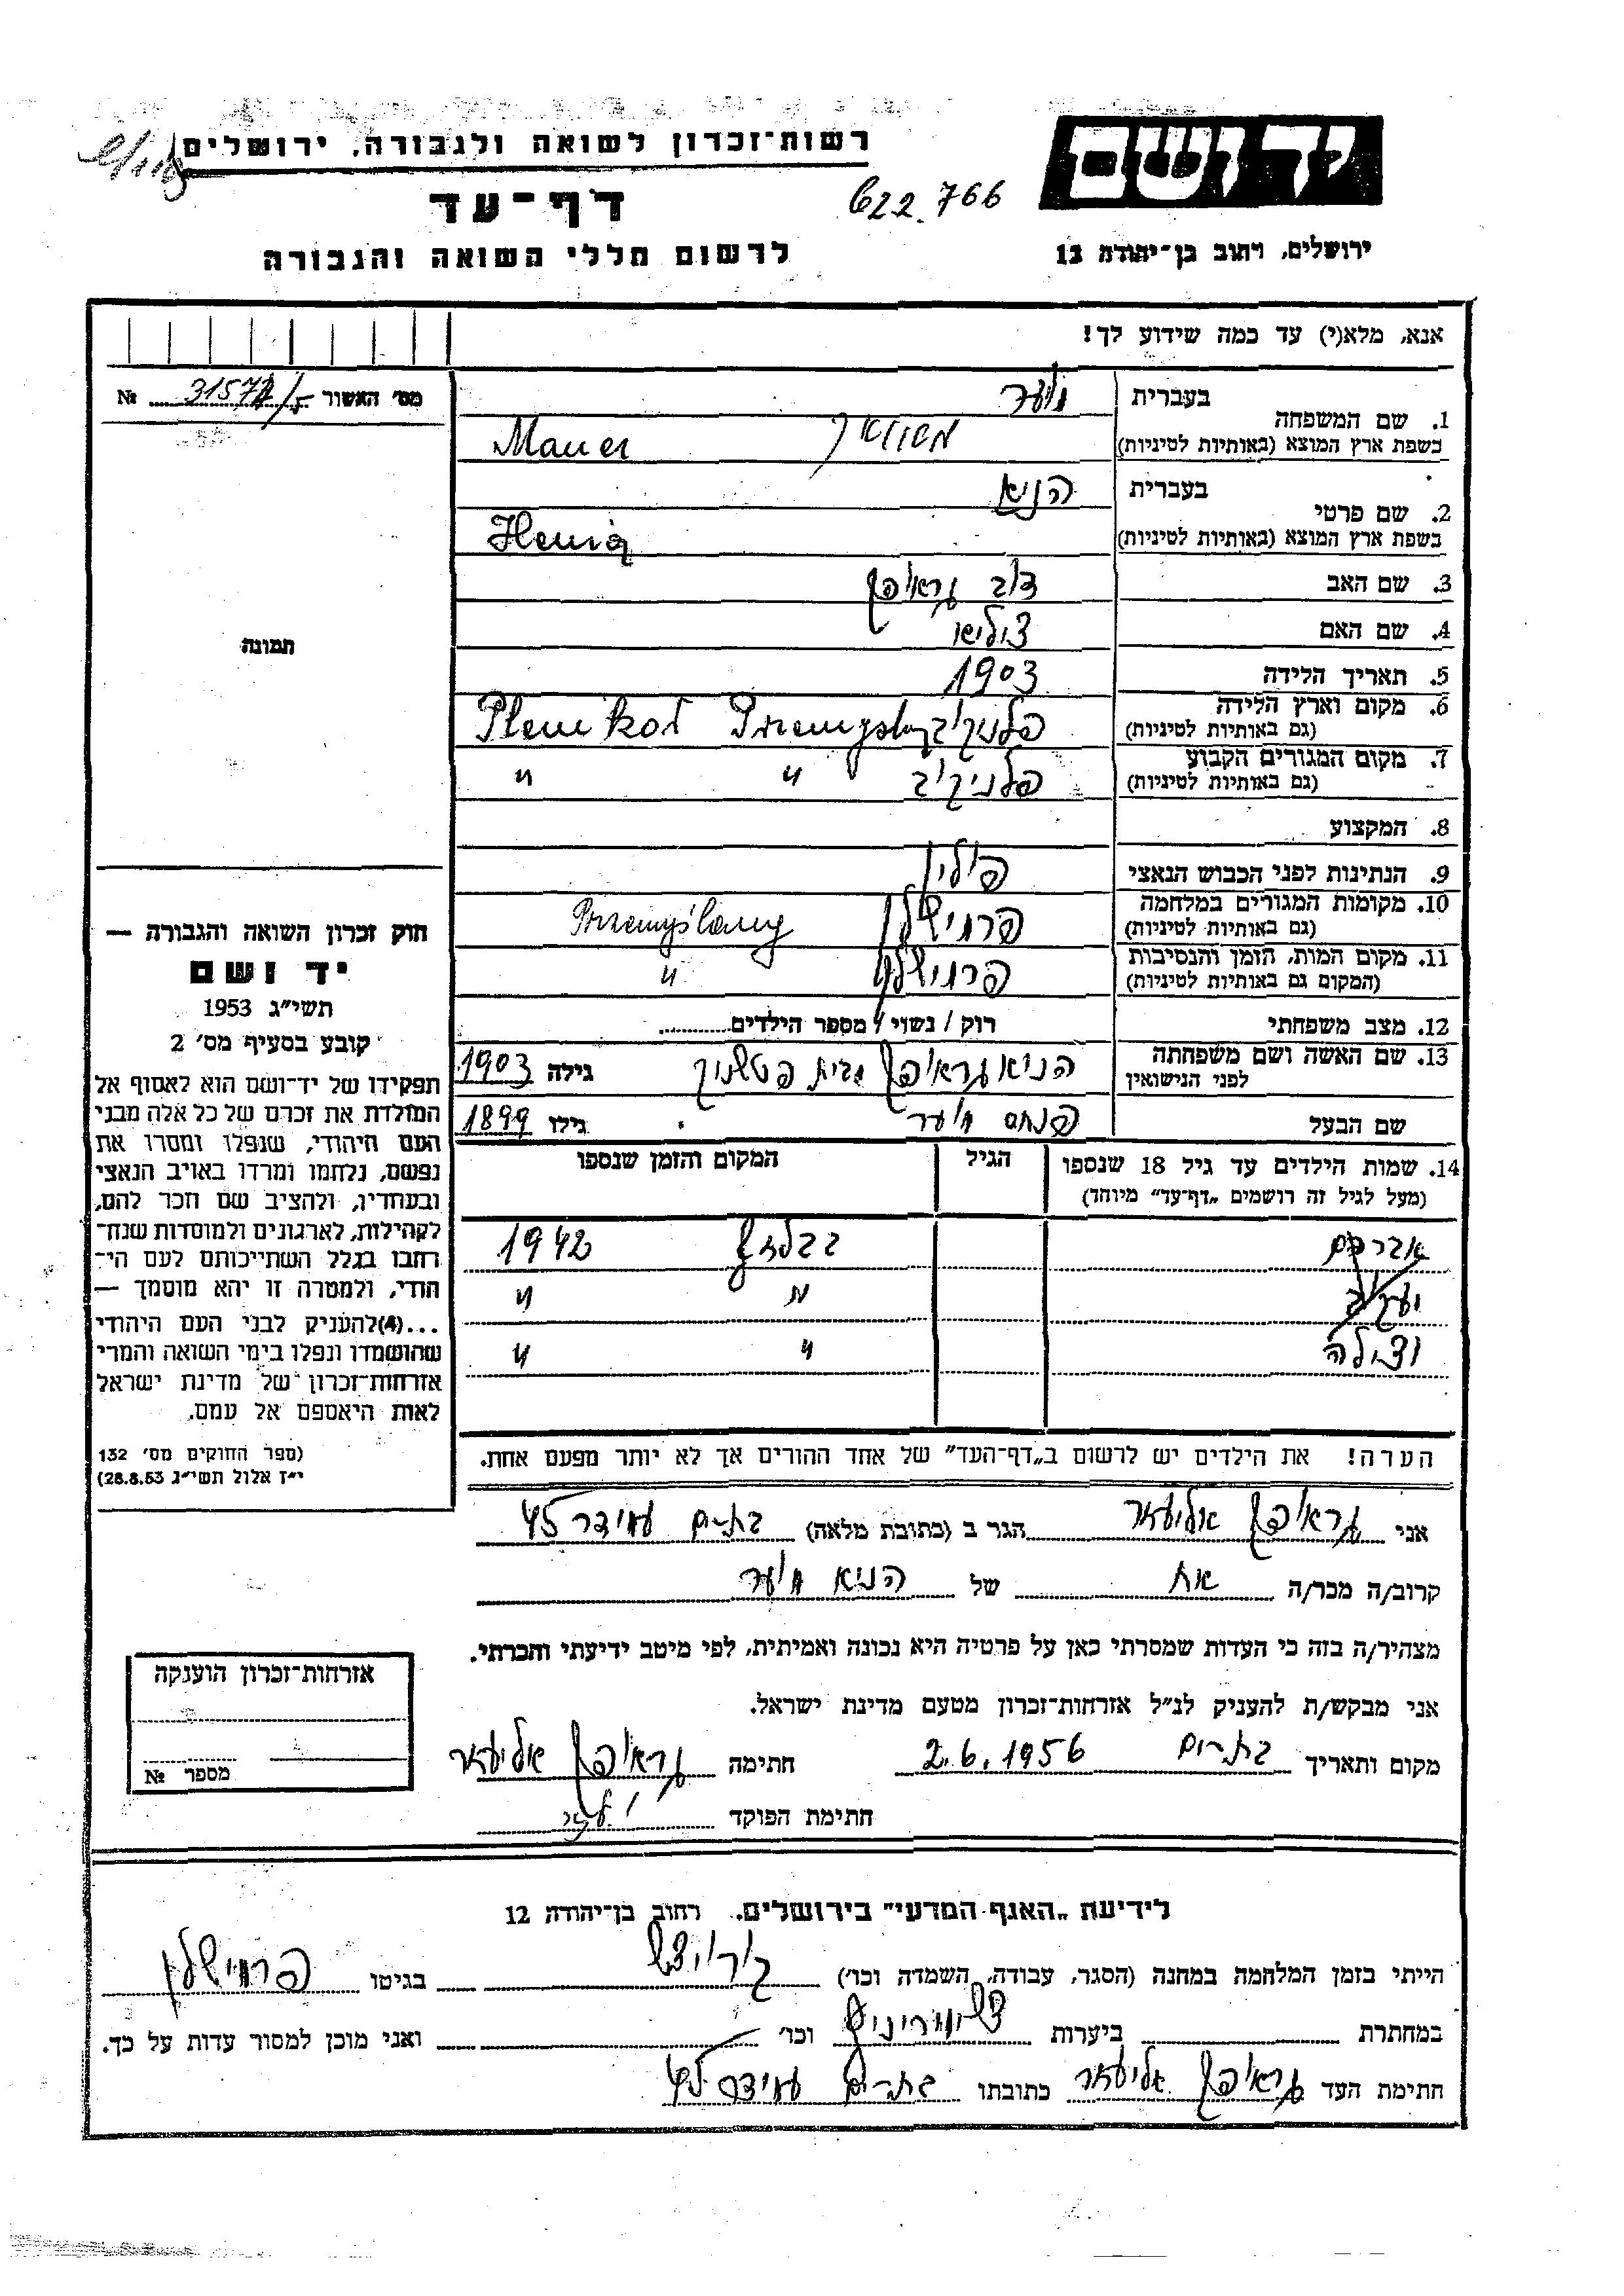 רשות־זכרון לשואה ולגבורה, ירושלים
יד ושם
דף־עד
622.766
לרשום חללי השואה והגבורה
ירושלים, רחוב בן־יהודה 12
אנא, מלא(י) עד כמה שידוע לך!
מס' האשור 31572/5 №
1. שם המשפחה
בעברית
בשפת ארץ המוצא (באותיות לטיניות) Mauer
2. שם פרטי
בעברית הניא
בשפת ארץ המוצא (באותיות לטיניות) Henia
3. שם האב דוב גרייפ
4. שם האם צוליא
5. תאריך הלידה 1903
6. מקום וארץ הלידה (גם באותיות לטיניות) פלניקוב Plenikow Przemyslany
7. מקום המגורים הקבוע (גם באותיות לטיניות) פלניקוב " "
8. המקצוע
9. הנתינות לפני הכבוש הנאצי פולין
10. מקומות המגורים במלחמה (גם באותיות לטיניות) פרמישלן Przemyślany
11. מקום המות, הזמן והנסיבות (המקום גם באותיות לטיניות) פרמישלן "
12. מצב משפחתי רוק / נשוי / מספר הילדים
13. שם האשה ושם משפחתה לפני הנישואין הניא גרייפ מבית גילה 1903
שם הבעל פנחס גילו 1899
14. שמות הילדים עד גיל 18 שנספו (מעל לגיל זה רושמים „דף־עד" מיוחד)
הגיל
המקום והזמן שנספו
אברהם בבלזץ 1942
יעקב " "
וצילה " "
הערה! את הילדים יש לרשום ב„דף־העד" של אחד ההורים אך לא יותר מפעם אחת.
תמונה
חוק זכרון השואה והגבורה —
יד ושם
תשי"ג 1953
קובע בסעיף מס' 2
תפקידו של יד־ושם הוא לאסוף אל
המולדת את זכרם של כל אלה מבני
העם היהודי, שנפלו ומסרו את
נפשם, נלחמו ומרדו באויב הנאצי
ובעוזריו, ולהציב שם וזכר להם,
לקהילות, לארגונים ולמוסדות שנח־
רבו בגלל השתייכותם לעם הי־
הודי, ולמטרה זו יהא מוסמך —
...(4)להעניק לבני העם היהודי
שהושמדו ונפלו בימי השואה והמרי
אזרחות־זכרון של מדינת ישראל
לאות היאספם אל עמם.
(ספר החוקים מס' 132
י"ז אלול תשי"ג 28.8.53)
אני גרייפ אליעזר הגר ב (כתובת מלאה) בת־ים עמידר 45
קרוב/ה מכר/ה אח של הניא
מצהיר/ה בזה כי העדות שמסרתי כאן על פרטיה היא נכונה ואמיתית, לפי מיטב ידיעתי והכרתי.
אני מבקש/ת להעניק לנ"ל אזרחות־זכרון מטעם מדינת ישראל.
מקום ותאריך בת־ים 2.6.1956 חתימה גרייפ אליעזר
חתימת הפוקד
אזרחות־זכרון הוענקה
מספר №
לידיעת „האגף המדעי" בירושלים, רחוב בן־יהודה 12
הייתי בזמן המלחמה במחנה (הסגר, עבודה, השמדה וכו') בגיטו פרמישלן
במחתרת ביערות וכו' ואני מוכן למסור עדות על כך.
חתימת העד גרייפ אליעזר כתובתו בת־ים עמידר 45